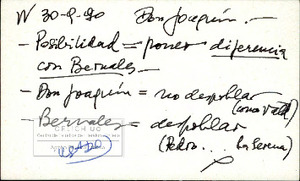 N 30-9-90 Don Joaquín.-
- Posibilidad = poner diferencia
con Bernales.
- Don Joaquín = no despoblar
(como Vald.)
- Bernales = despoblar
CELICH UC
(Pedro... La Serena)
USADO